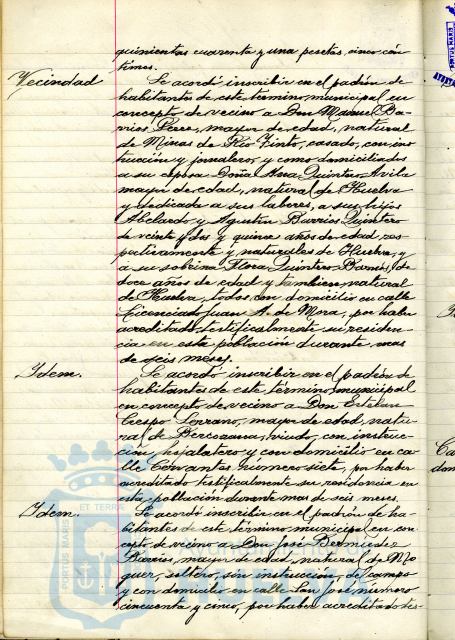 quinientas cuarenta y una pesetas, cinco cén-
timos.
Vecindad
Se acordó inscribir en el padrón de
habitantes de este término municipal en
concepto de vecino a Don Manuel Ba-
rrios Pérez, mayor de edad, natural
de Minas de Río Tinto, casado, con ins-
trucción y jornalero, y como domiciliados
a su esposa Doña Ana Quintero Avila
mayor de edad, natural de Huelva
y dedicada a sus labores, a sus hijos
Abelardo y Agustín Barrios Quintero
de veinte y dos y quince años de edad res-
pectivamente y naturales de Huelva, y
a su sobrina Flora Quintero Barrios, de
doce años de edad y tambien natural
de Huelva, todos con domicilio en calle
Licenciado Juan A. de Mora, por haber
acreditado testificalmente su residen-
cia en esta población durante mas
de seis meses.
Idem.
Se acordó inscribir en el padrón de
habitantes de este término municipal
en concepto de vecino a Don Esteban
Crespo Lozano, mayor de edad, natu-
ral de Berrocana, viudo, con instruc-
ción, hojalatero y con domicilio en ca-
lle Cervantes número siete, por haber
acreditado testificalmente su residencia en
esta población durante mas de seis meses.
Idem.
Se acordó inscribir en el padrón de ha-
bitantes de este término municipal en con-
cepto de vecino a Don José Bermúdez
Barrios, mayor de edad, natural de Mo-
guer, soltero, sin instrucción, de campo
y con domicilio en calle San José número
cincuenta y cinco, por haber acreditado tes-
PORTUS MARIS ET TERRA
Ayuntamiento de
HUELVA